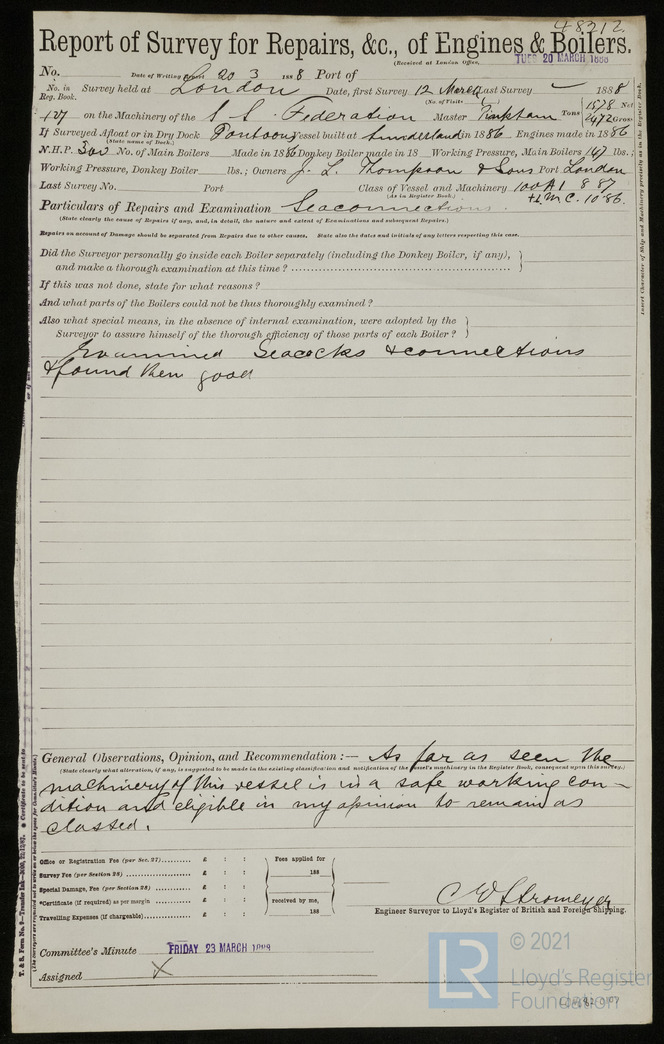 48212.
Report of Survey for Repairs, &c., of Engines & Boilers.
(Received at London Office, TUES 20 MARCH 1888
No. Date of Writing Report 20 3 1888 Port of
No. in Reg. Book. Survey held at London Date, first Survey 12 March Last Survey 1888
(No. of Visits )
127 on the Machinery of the S S. Federation Master Tons 1528 Net 2472 Gross
If Surveyed Afloat or in Dry Dock Pontoons Vessel built at Sunderland in 1886 Engines made in 1886
(State name of Dock.)
N.H.P. 300 No. of Main Boilers Made in 1886 Donkey Boiler made in 18 Working Pressure, Main Boilers 147 lbs.;
Working Pressure, Donkey Boiler lbs.; Owners J. L. Thompson & Sons Port London
Last Survey No. Port Class of Vessel and Machinery 100A1 8 87
(As in Register Book.) +LMC. 10.86.
Particulars of Repairs and Examination Seaconnections.
(State clearly the cause of Repairs if any, and, in detail, the nature and extent of Examinations and subsequent Repairs.)
Repairs on account of Damage should be separated from Repairs due to other causes. State also the dates and initials of any letters respecting this case.
Did the Surveyor personally go inside each Boiler separately (including the Donkey Boiler, if any),
and make a thorough examination at this time?
If this was not done, state for what reasons?
And what parts of the Boilers could not be thus thoroughly examined?
Also what special means, in the absence of internal examination, were adopted by the
Surveyor to assure himself of the thorough efficiency of those parts of each Boiler?
Examined Seacocks & connections
& found them good
General Observations, Opinion, and Recommendation:— As far as seen the
(State clearly what alteration, if any, is suggested to be made in the existing classification and notification of the vessel's machinery in the Register Book, consequent upon this survey.)
machinery of this vessel is in a safe working con-
dition and eligible in my opinion to remain as
classed.
Office or Registration Fee (per Sec. 27) £ : : Fees applied for
Survey Fee (per Section 28) £ : : 188
Special Damage, Fee (per Section 28) £ : :
*Certificate (if required) as per margin £ : : received by me,
Travelling Expenses (if chargeable) £ : : 188
C W Stromeyer
Engineer Surveyor to Lloyd's Register of British and Foreign Shipping.
Committee's Minute FRIDAY 23 MARCH 1888
Assigned X
Insert Character of Ship and Machinery precisely as in the Register Book.
(The Surveyors are requested not to write on or below the space for Committee's Minute.)
© 2021
LR
Lloyd's Register
Foundation